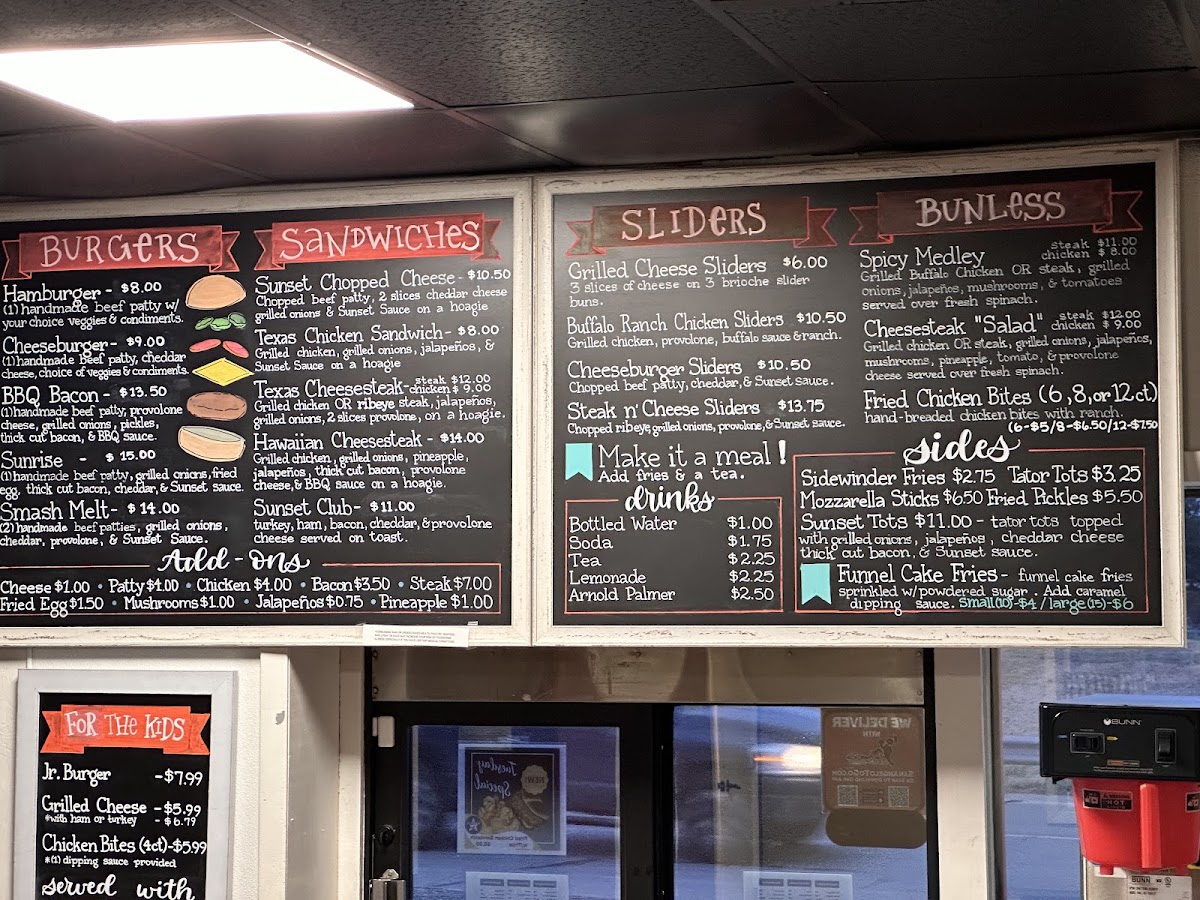 BURGERS
Hamburger - $8.00
(1) handmade beef patty w/
your choice veggies & condiments.
Cheeseburger - $9.00
(1) handmade beef patty, cheddar
cheese, choice of veggies & condiments.
BBQ Bacon - $13.50
(1) handmade beef patty, provolone
cheese, grilled onions, pickles,
thick cut bacon, & BBQ sauce.
Sunrise - $ 15.00
(1) handmade beef patty, grilled onions, fried
egg, thick cut bacon, cheddar, & Sunset sauce.
Smash Melt - $ 14.00
(2) handmade beef patties, grilled onions,
cheddar, provolone, & Sunset Sauce.
SANDWICHES
Sunset Chopped Cheese - $10.50
Chopped beef patty, 2 slices cheddar cheese
grilled onions & Sunset Sauce on a hoagie
Texas Chicken Sandwich - $8.00
Grilled chicken, grilled onions, jalapeños, &
Sunset Sauce on a hoagie
Texas Cheesesteak - steak $12.00
chicken $ 9.00
Grilled chicken OR ribeye steak, jalapeños,
grilled onions, 2 slices provolone, on a hoagie.
Hawaiian Cheesesteak - $14.00
Grilled chicken, grilled onions, pineapple,
jalapeños, thick cut bacon, provolone
cheese, & BBQ sauce on a hoagie.
Sunset Club - $11.00
turkey, ham, bacon, cheddar, & provolone
cheese served on toast.
Add-ons
Cheese $1.00 • Patty $4.00 • Chicken $4.00 • Bacon $3.50 • Steak $7.00
Fried Egg $1.50 • Mushrooms $1.00 • Jalapeños $0.75 • Pineapple $1.00
SLIDERS
Grilled Cheese Sliders $6.00
3 slices of cheese on 3 brioche slider
buns.
Buffalo Ranch Chicken Sliders $10.50
Grilled chicken, provolone, buffalo sauce & ranch.
Cheeseburger Sliders $10.50
Chopped beef patty, cheddar, & Sunset sauce.
Steak n' Cheese Sliders $13.75
Chopped ribeye, grilled onions, provolone, & Sunset sauce.
Make it a meal!
Add fries & a tea.
drinks
Bottled Water $1.00
Soda $1.75
Tea $2.25
Lemonade $2.25
Arnold Palmer $2.50
BUNLESS
Spicy Medley steak $11.00
chicken $ 8.00
Grilled Buffalo Chicken OR steak, grilled
onions, jalapeños, mushrooms, & tomatoes
served over fresh spinach.
Cheesesteak "Salad" steak $12.00
chicken $ 9.00
Grilled chicken OR steak, grilled onions, jalapeños,
mushrooms, pineapple, tomato, & provolone
cheese served over fresh spinach.
Fried Chicken Bites (6, 8, or 12 ct)
hand-breaded chicken bites with ranch.
(6-$5/8-$6.50/12-$7.50)
sides
Sidewinder Fries $2.75 Tator Tots $3.25
Mozzarella Sticks $6.50 Fried Pickles $5.50
Sunset Tots $11.00 - tator tots topped
with grilled onions, jalapeños, cheddar cheese
thick cut bacon, & Sunset sauce.
Funnel Cake Fries - funnel cake fries
sprinkled w/powdered sugar. Add caramel
dipping sauce. Small(10)-$4 / large(15)-$6
FOR THE KIDS
Jr. Burger - $7.99
Grilled Cheese - $5.99
*with ham or turkey - $6.79
Chicken Bites (4ct) - $5.99
*(1) dipping sauce provided
served with
NEW!
Tuesday
Special
WE DELIVER
WITH
SANANGELOTOGO.COM
BUNN
HOT
BUNN